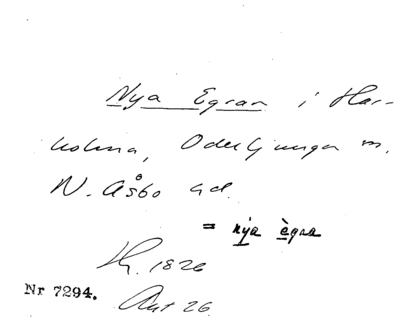 Nya Egran i Har-
holma, Oderljunga m.
N. Åsbo hd.
= nya ègra
Hr. 1826
Nr 7294.
Akt 26